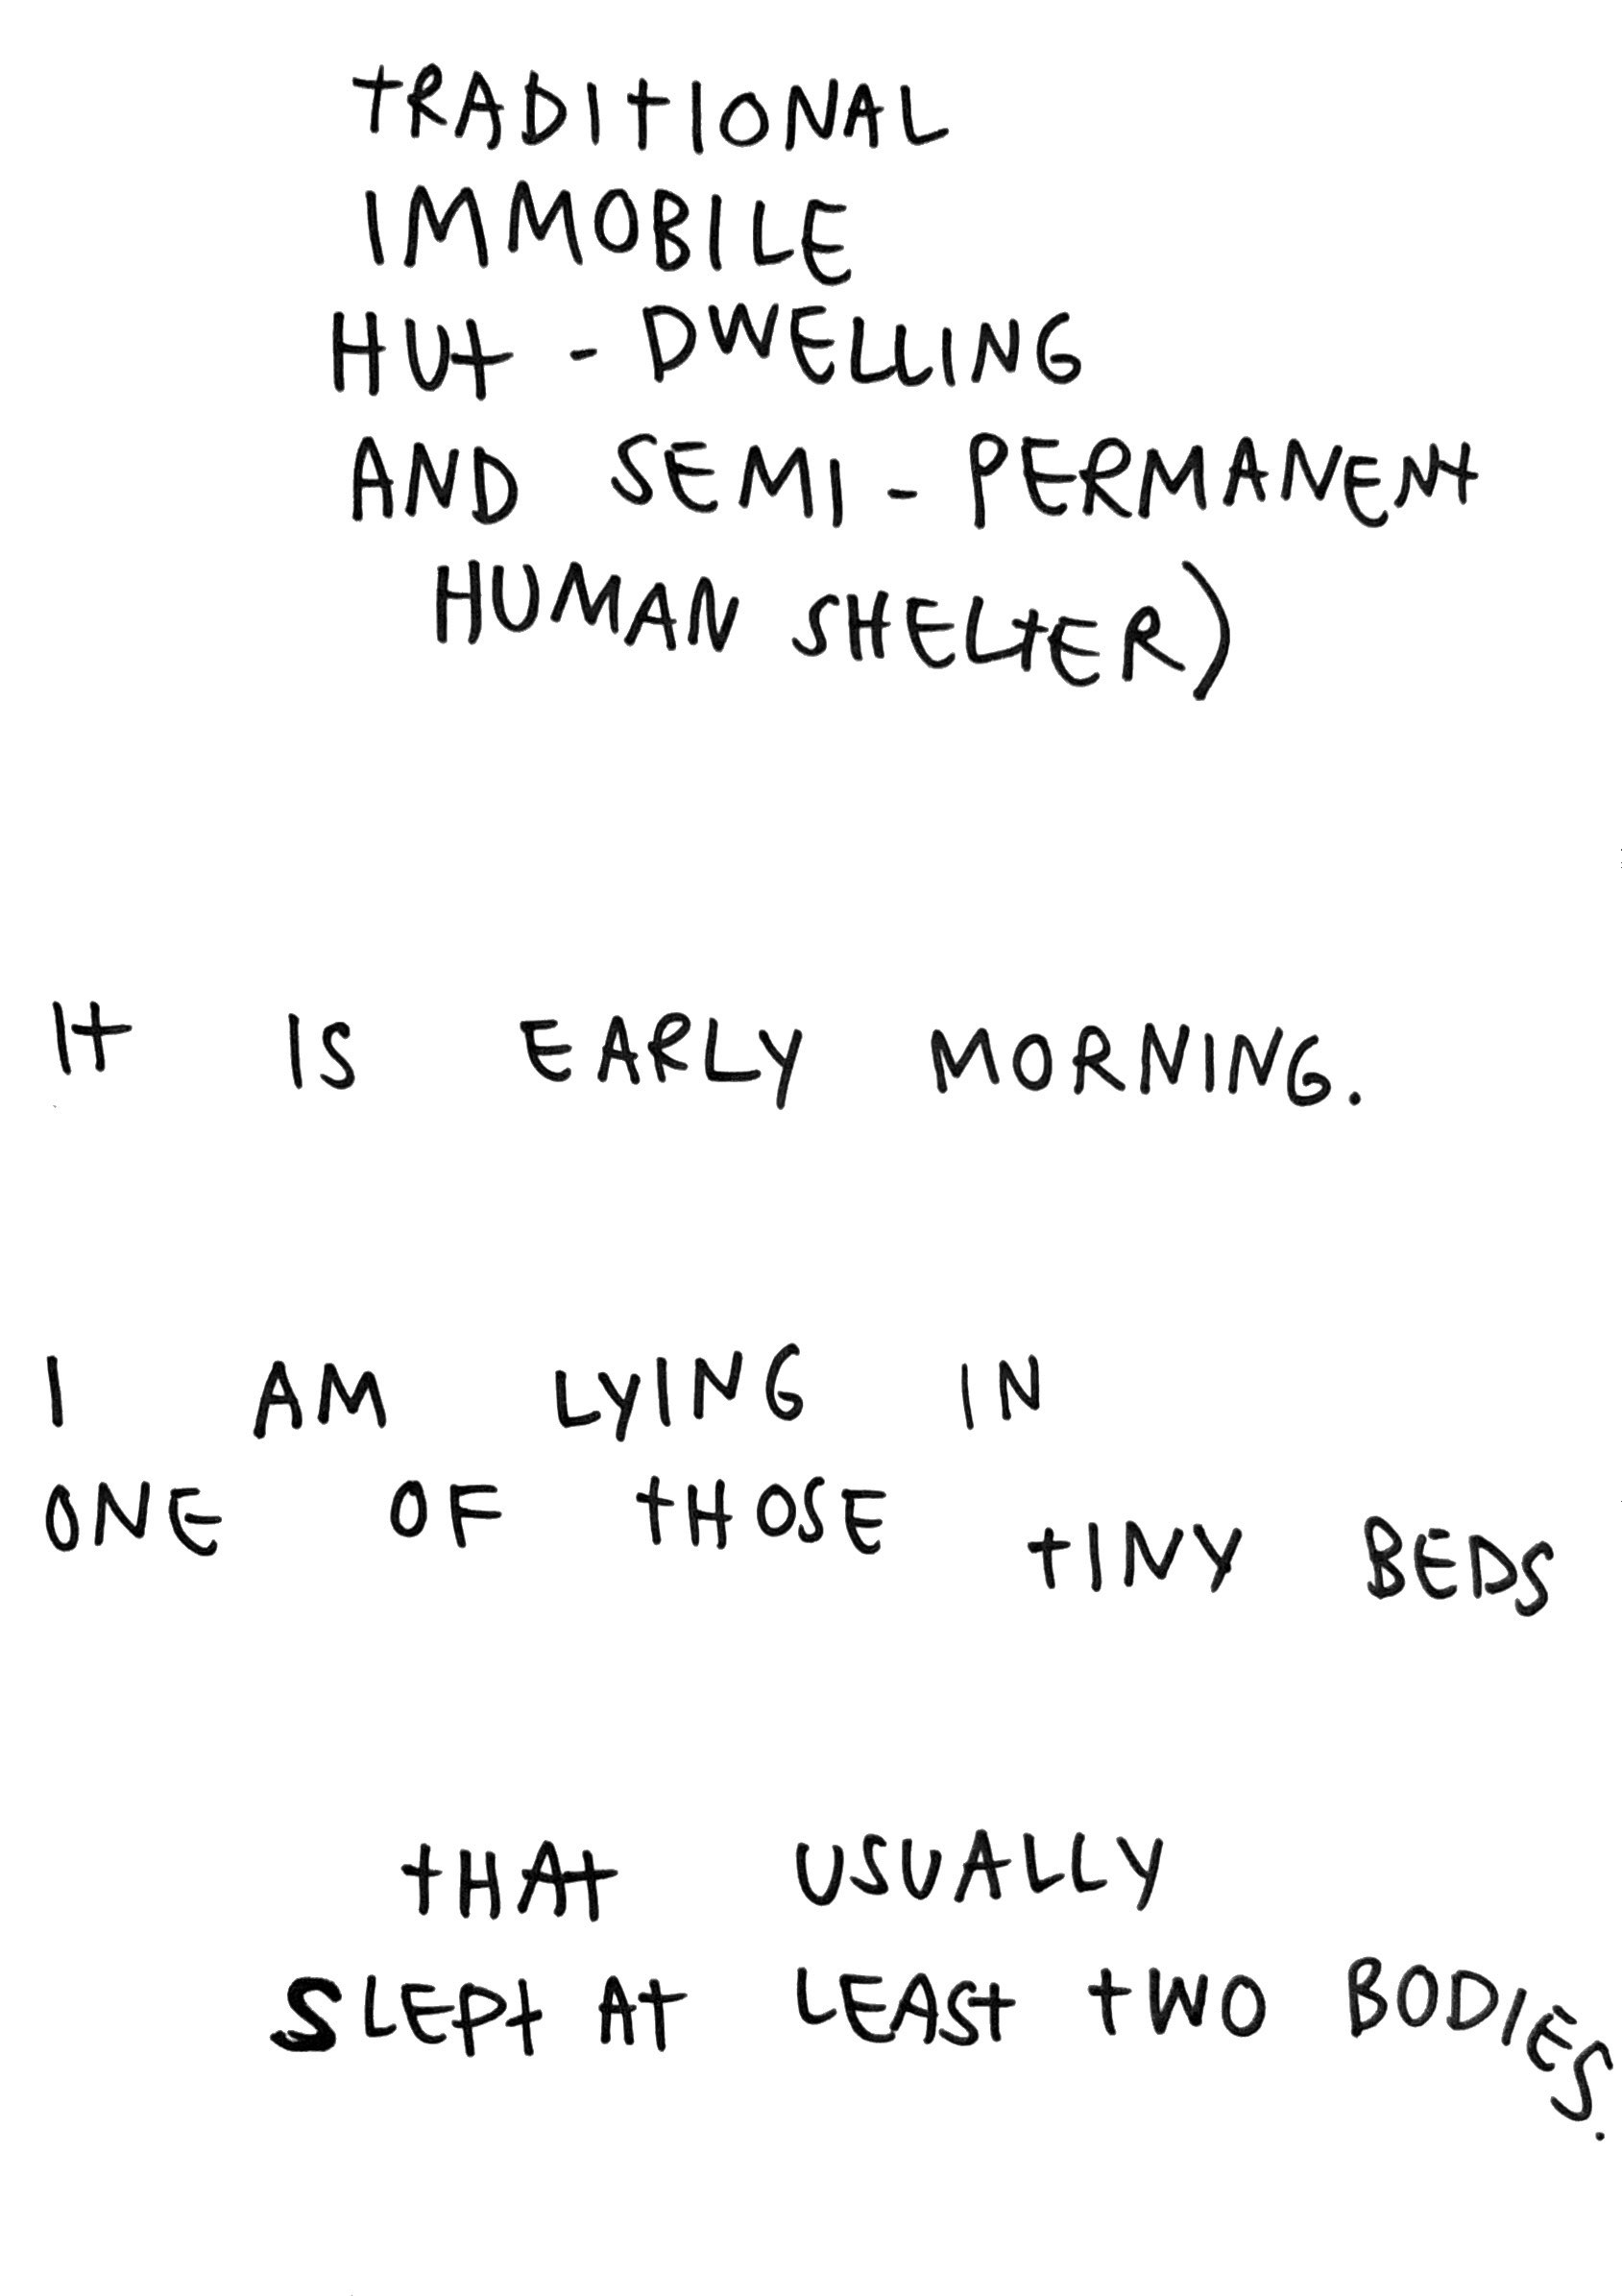 TRADITIONAL
IMMOBILE
HUT - DWELLING
AND SEMI - PERMANENT
HUMAN SHELTER)
IT IS EARLY MORNING.
I AM LYING IN
ONE OF THOSE TINY BEDS
THAT USUALLY
SLEPT AT LEAST TWO BODIES.